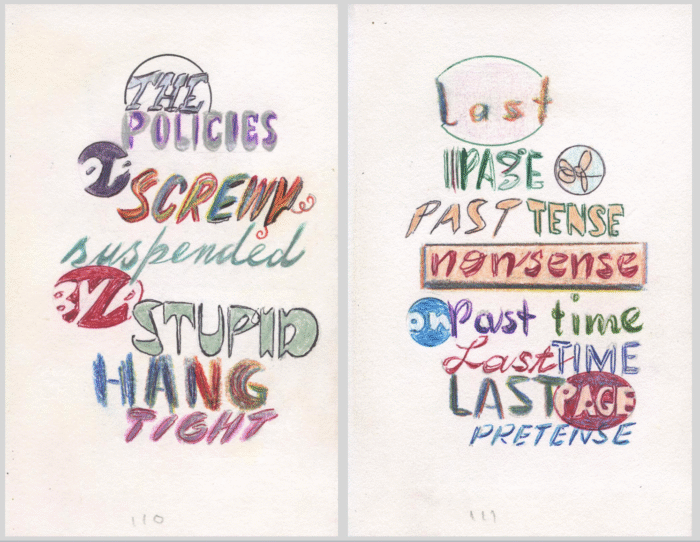 THE
POLICIES
SCREWY
suspended
BY
STUPID
HANG
TIGHT
110
Last
PAGE
PAST TENSE
nonsense
on Past time
Last TIME
LAST PAGE
PRETENSE
111